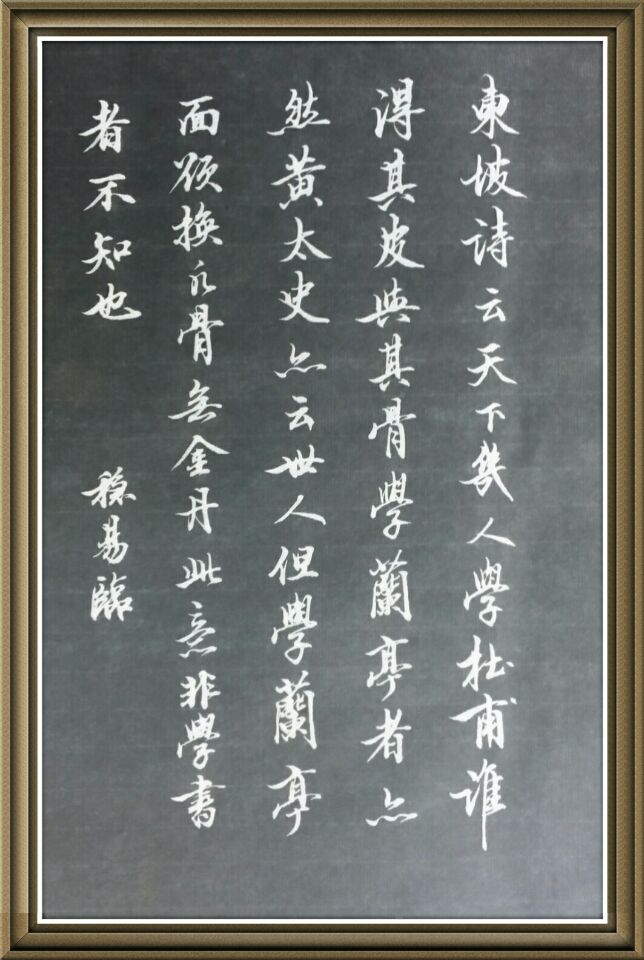 東坡詩云天下幾人學杜甫誰
得其皮與其骨學蘭亭者亦
然黃太史亦云世人但學蘭亭
面欲換凡骨無金丹此意非學書
者不知也
易臨